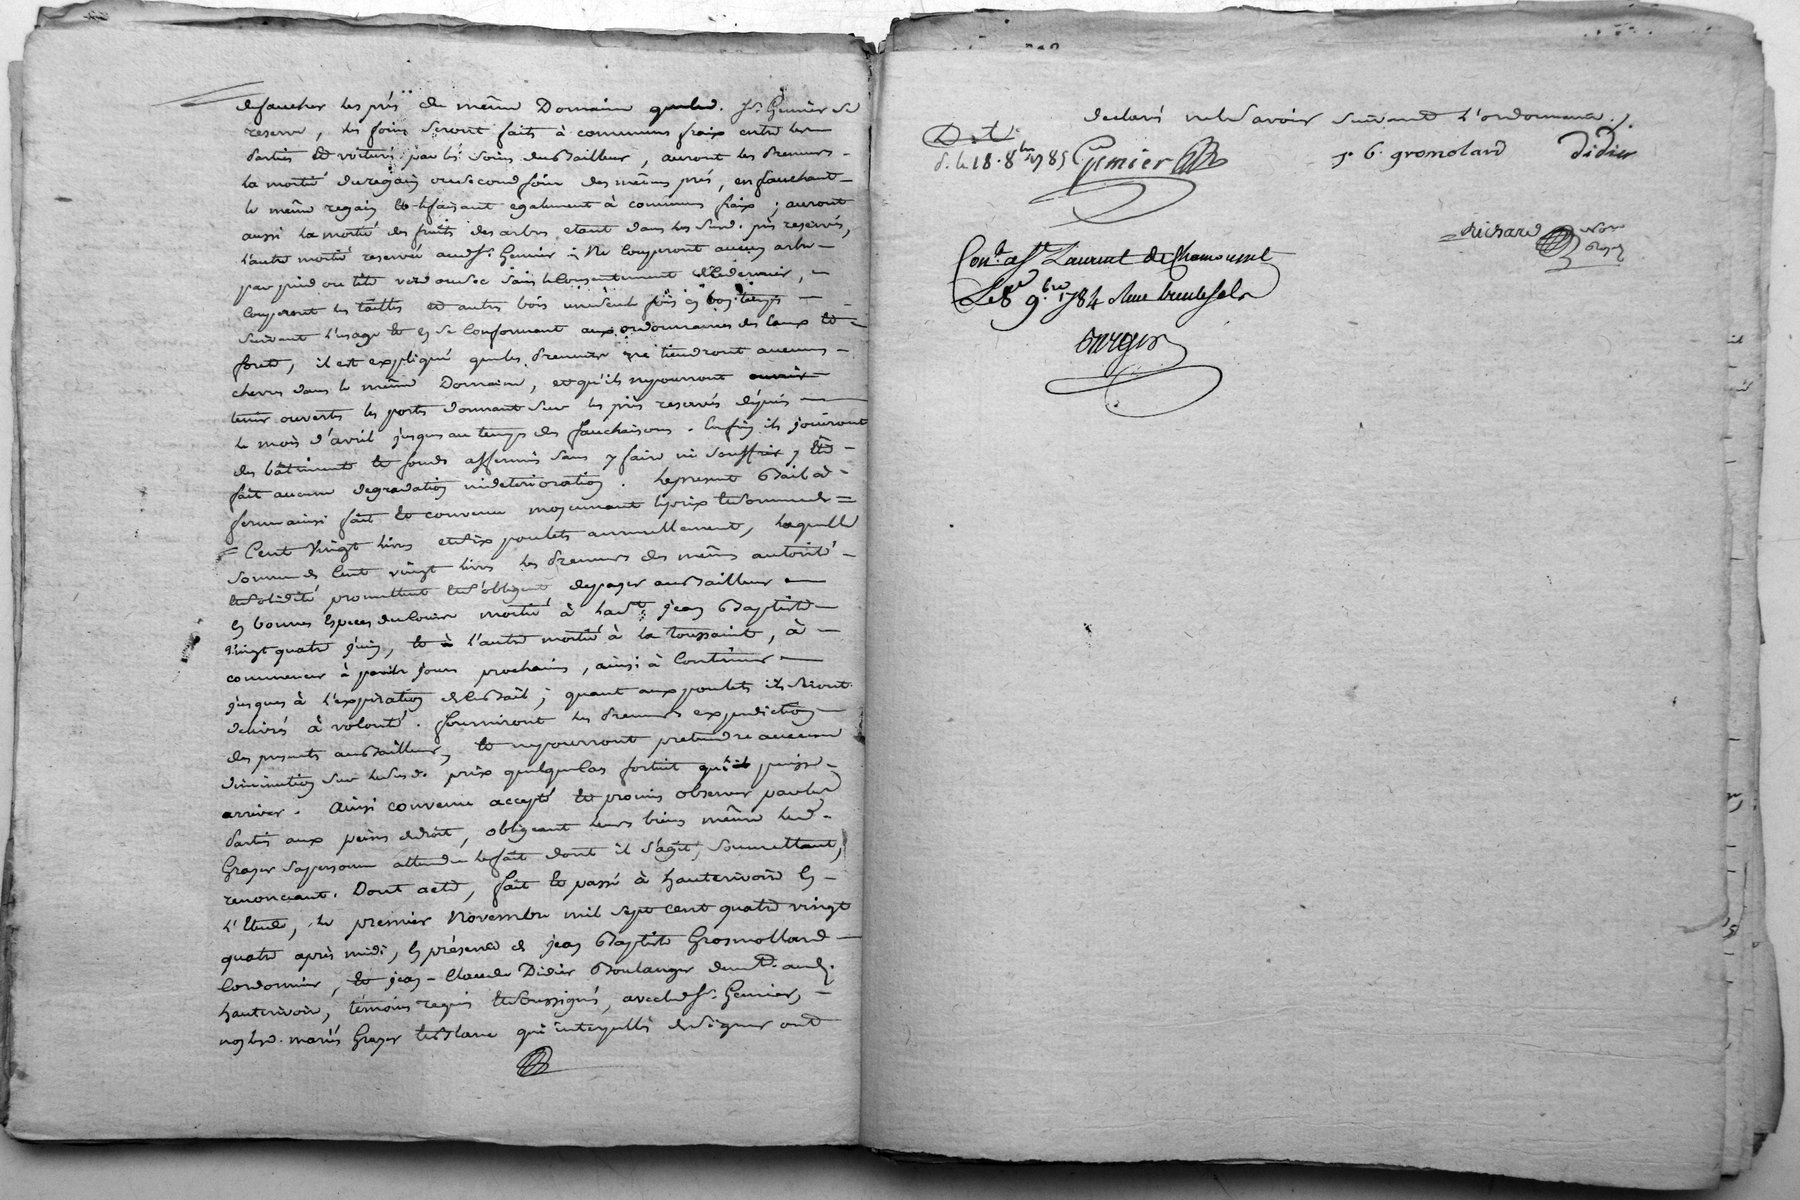 defaucher les prés du même Domaine queled. Sr. Gemier se
reserve, les foins seront faits à communs fraix entre les
parties et voiturés par les soins du Bailleur, auront les preneurs
la moitié du regain ou second foin des mêmes prés, en fauchant
le même regain et le faisant egalement à communs fraix ; auront
aussi la moitié des fruits des arbres etant dans les susd. prés reservés,
l'autre moitié reservée aud. Sr. Gemier ; Ne Couperont aucun arbre
par pied ou tête verd ou sec sans le Consentement de ce dernier,
Couperont les taillis et autres bois une seule fois en bon temps
suivant l'usage et en se Conformant aux ordonnances des Eaux et
forets, il est expliqué que les preneurs ne tiendront aucunes
chevres dans le même Domaine, et qu'ils ne pourront
tenir ouverts les portes donnant sur les prés reservés depuis
le mois d'avril jusques au temps des fauchaisons. Enfin ils joüiront
des bâtiments et fonds affermés sans y faire ni souffrir y être
fait aucune degradation ni deterioration. Le present Bail à
ferme ainsi fait et convenu moyennant le prix et somme de
Cent Vingt livres et six poulets annuellement, laquelle
somme de Cent vingt livres les preneurs des mêmes autorité
et solidité promettent et s'obligent de payer au Bailleur
en bonnes Especes du Cours moitié à la st. jean Baptiste
vingt quatre juin, et à l'autre moitié à la Toussaint, à
commencer à pareils jours prochains, ainsi à Continuer
jusques à l'expiration de ce Bail ; quant aux poulets ils seront
delivrés à volonté. fourniront les preneurs expedition
des presents au Bailleur, et ne pourront pretendre aucune
diminution sur le susd. prix quelque Cas fortuit qui puisse
arriver. Ainsi convenu accepté et promis observer par les
parties aux peines de droit, obligeant leurs biens même led.
Grayer sa personne attendu le fait dont il s'agit, soumettant,
renonceant. Dont acte, fait et passé à hauterivoire en
l'Etude, le premier Novembre mil sept cent quatre vingt
quatre après midi, en présence de jean Baptiste Grosmollard
Cordonnier, et jean-Claude Didier Boulanger demt. aud.
hauterivoire, témoins requis et soussignés, avec led. Sr. Gemier,
non lesd. mariés Grayer et Blanc qui interpellés de signer ont
declaré ne le savoir suivant l'ordonnance.
D. le 18. 8bre 1785 Gemier
J. B. gromolard
Didier
Richard Nore Royal
Con.lé a St. Laurent de Chamousset
Le 8e 9.bre 1784